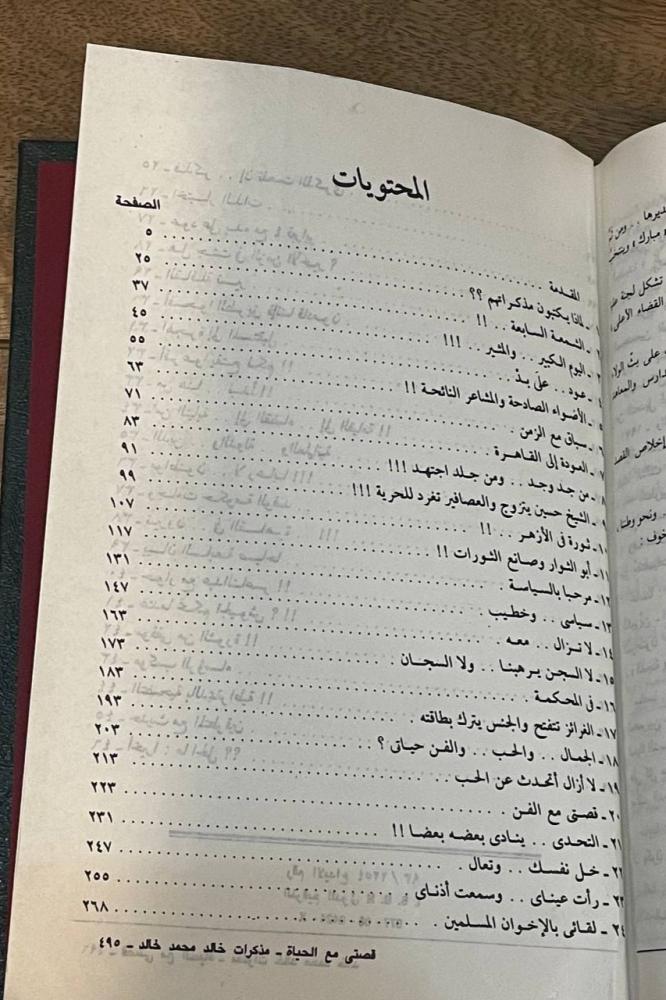 المحتويات
الصفحة
المقدمة ٥
١ ـ لماذا يكتبون مذكراتهم ؟؟ ٢٥
٢ ـ الشمعة السابعة . . !! ٣٧
٣ ـ اليوم الكبير . . والمثير . . !!! ٤٥
٤ ـ عود . . على بدْ ٥٥
٥ ـ الأضواء الصادحة والمشاعر النائحة !! ٦٣
٦ ـ سباق مع الزمن ٧١
٧ ـ العودة إلى القاهرة ٨٣
٨ ـ من جد وجد . . ومن جلد اجتهد !!! ٩١
٩ ـ الشيخ حسين يتزوج والعصافير تغرد للحرية !!! ٩٩
١٠ ـ ثورة فى الأزهر . . !! ١٠٧
١١ ـ أبو الثوار وصانع الثورات !! ١١٧
١٢ ـ مرحبا بالسياسة ١٣١
١٣ ـ سياسى . . وخطيب ١٤٧
١٤ ـ لا نزال . . معه ١٦٣
١٥ ـ لا السجن يرهبنا . . ولا السجان ١٧٣
١٦ ـ فى المحكمة ١٨٣
١٧ ـ الغرائز تتفتح والجنس يترك بطاقته ١٩٣
١٨ ـ الجمال . . والحب . . والفن حياتى ؟ ٢٠٣
١٩ ـ لا أزال أتحدث عن الحب ٢١٣
٢٠ ـ قصتى مع الفن ٢٢٣
٢١ ـ التحدى . . ينادى بعضه بعضا !! ٢٣١
٢٢ ـ خل نفسك . . وتعال ٢٤٧
٢٣ ـ رأت عيناى . . وسمعت أذناى ٢٥٥
٢٤ ـ لقائى بالإخوان المسلمين ٢٦٨
قصتى مع الحياة ـ مذكرات خالد محمد خالد ـ ٤٩٥